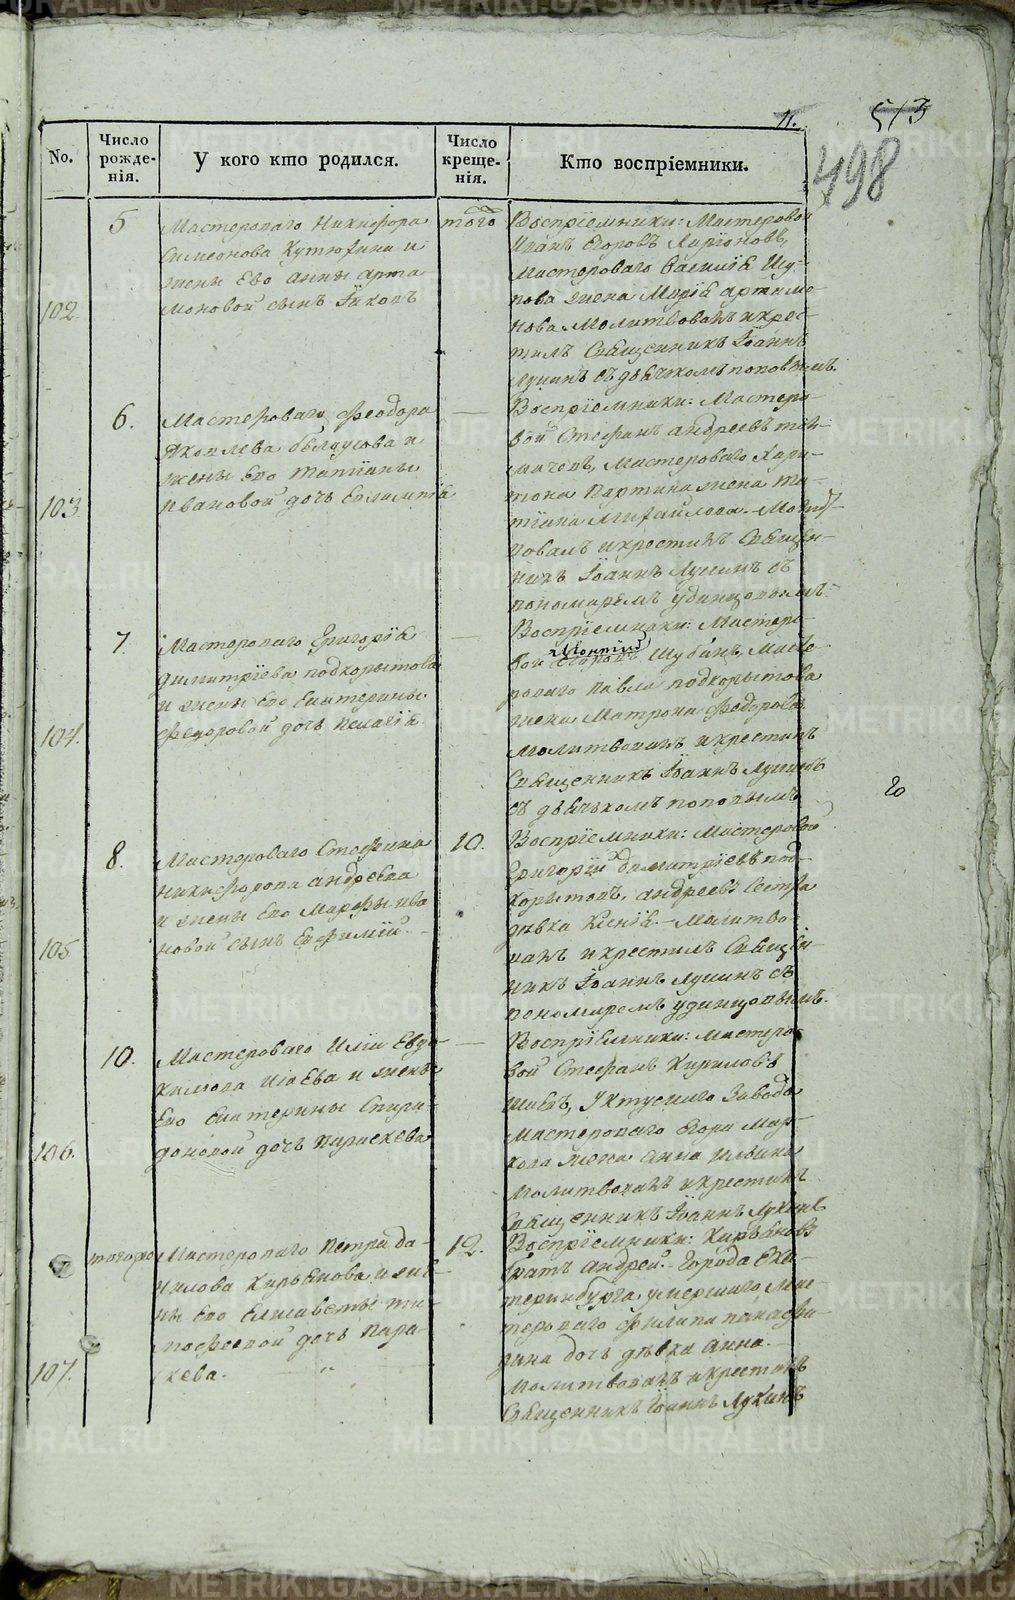 11.
513
498
No.
Число рожде-нія.
У кого кто родился.
Число креще-нія.
Кто воспріемники.
102
5
Мастероваго Никифора
Симеонова Кутюхина и
жены Его Анны Арта
моновой сынъ Іяковъ
того
Воспріемники: Мастеровой
Иванъ Егоровъ Ларіоновъ,
Мастероваго Василія
жена Марія Артамо-
нова Молитвовалъ и крес-
тилъ Священникъ Іоаннъ
Лукинъ съ дьячкомъ поповымъ.
103
6.
Мастероваго Феодора
Яковлева Белоусова и
жены Его Татіаны
Ивановой дочь Евлампія
Воспріемники: Мастеро-
вой Стефанъ Андреевъ
Мастероваго Хари-
тона Партина жена Та-
тіана Михайлова. Молит-
вовалъ и крестилъ Священ-
никъ Іоаннъ Лукинъ съ
пономаремъ удинцовымъ.
104.
7
Мастероваго Григорія
Димитріева подкорытова
и жены Его Екатерины
Федоровой дочь Пелагія.
Воспріемники: Мастеро-
вой Шубинъ, Масте-
роваго Павла подкорытова
жена Матрона Федорова.
Молитвовалъ и крестилъ
Священникъ Іоаннъ Лукинъ
съ дьячкомъ поповымъ
105
8.
Мастероваго Стефана
Никифорова Андреева
и жены Его Марфы Ива
новой сынъ Евфимій.
10.
Воспріемники: Мастеровой
Григорій Димитріевъ под-
корытовъ, Андреева сестра
девка Ксенія. Молитво-
валъ и крестилъ Священ-
никъ Іоаннъ Лукинъ съ
пономаремъ удинцовымъ.
106.
10.
Мастероваго Иліи Евдо-
кимова Исаева и жены
Его Екатерины Спири-
доновой дочь Параскева
Воспріемники: Мастеро-
вой Стефанъ Кириловъ
Уктускаго Завода
Мастероваго Егора Мар-
кова жена Анна Ильина
Молитвовалъ и крестилъ
Священникъ Іоаннъ Лукинъ
107.
тогожъ
Мастероваго Петра Да-
нилова Кирьянова и же-
ны Его Елисаветы Ти-
мофеевой дочь Пара
скева.
12.
Воспріемники: Кирьянова
братъ Андрей. Города Ека-
теринбурга умершаго Мас
тероваго Филипа
дочь девка Анна.
Молитвовалъ и крестилъ
Священникъ Іоаннъ Лукинъ
METRIKI.GASO-URAL.RU